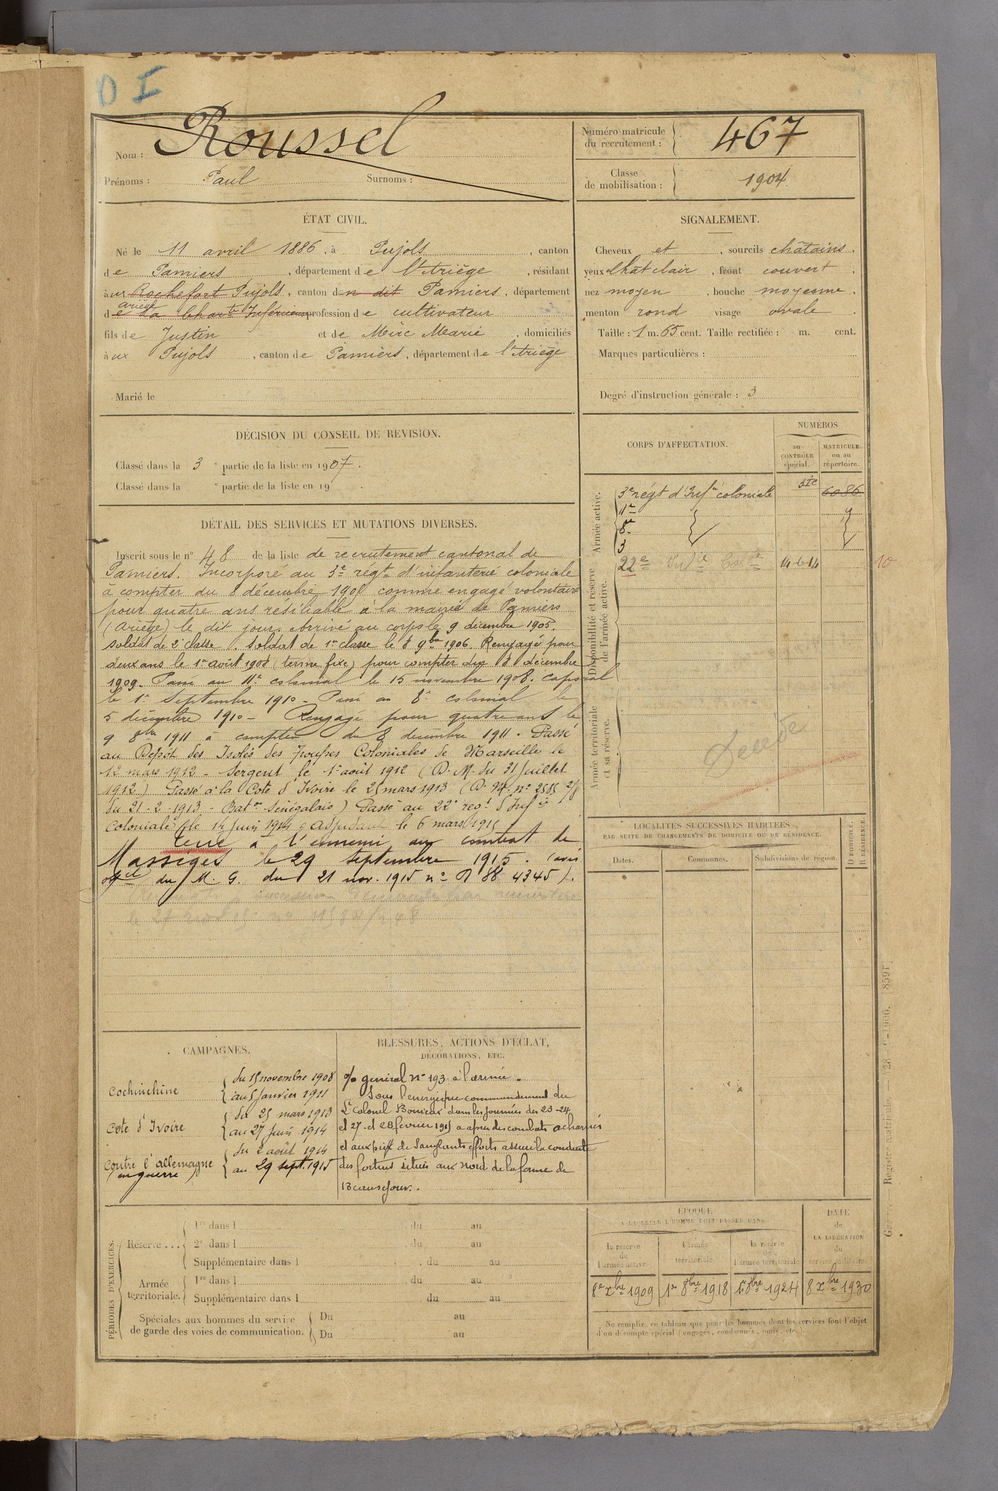 D I
Nom : Roussel
Prénoms : Paul Surnoms :
Numéro matricule du recrutement : 467
Classe de mobilisation : 1904
ÉTAT CIVIL.
Né le 11 avril 1886, à Pujols, canton
de Pamiers, département de l'Ariège, résidant
à ux Rochefort Pujols, canton du dit Pamiers, département
de la Charte Inférieure Ariège profession de cultivateur
fils de Justin et de Mirc Marie, domiciliés
à ux Pujols, canton de Pamiers, département de l'Ariège
Marié le
SIGNALEMENT.
Cheveux et , sourcils châtains.
yeux chât clair, front couvert,
nez moyen, bouche moyenne,
menton rond visage ovale.
Taille : 1 m. 65 cent. Taille rectifiée : m. cent.
Marques particulières :
Degré d'instruction générale : 3
DÉCISION DU CONSEIL DE REVISION.
Classé dans la 3 e partie de la liste en 1907.
Classé dans la e partie de la liste en 19 .
CORPS D'AFFECTATION.
NUMÉROS
au CONTRÔLE spécial.
MATRICULE ou au répertoire.
Armée active.
3e régt d'Infie coloniale 6086
11e
8e
3
Disponibilité et réserve de l'armée active.
22e Infie Colle 14-6-14
10
Armée territoriale et sa réserve.
DÉTAIL DES SERVICES ET MUTATIONS DIVERSES.
Inscrit sous le n° 48 de la liste de recrutement cantonal de
Pamiers. Incorporé au 3e régt d'infanterie coloniale
à compter du 8 décembre 1905 comme engagé volontaire
pour quatre ans résiliable à la mairie de Pamiers
(Ariège) le dit jour. Arrivé au corps le 9 décembre 1905.
soldat de 2e classe. Soldat de 1re classe le 8 9bre 1906. Rengagé pour
deux ans le 1er août 1908 (terme fixe) pour compter du 8 décembre
1909. Passé au 11e colonial le 15 novembre 1908. caporal
le 1er septembre 1910 - Passé au 8e colonial le
5 décembre 1910 - Rengagé pour quatre ans le
9 8bre 1911 à compter du 8 décembre 1911. Passé
au Dépôt des Isolés des Troupes Coloniales de Marseille le
12 mars 1913. Sergent le 1er août 1912 (D. M. du 31 juillet
1912) Passé à la Cote d'Ivoire le 25 mars 1913
du 21-2-1913 - Baton Sénégalais) Passé au 22e regt d'Infie
Coloniale le 14 juin 1914. Adjudant le 6 mars 1915
Tué à l'ennemi au combat de
Massiges le 29 septembre 1915. (avis
off du M. G. du 21 nov. 1915 n°
LOCALITÉS SUCCESSIVES HABITÉES
PAR SUITE DE CHANGEMENTS DE DOMICILE OU DE RÉSIDENCE.
Dates.
Communes.
Subdivisions de région.
D DOMICILE. R RÉSIDENCE.
CAMPAGNES.
Cochinchine { du 15 novembre 1908
au 5 janvier 1911
Cote d'Ivoire { du 25 mars 1913
au 27 juin 1914
Contre l'allemagne (en guerre) { du 2 août 1914
au 29 sept. 1915
BLESSURES, ACTIONS D'ÉCLAT,
DÉCORATIONS, ETC.
o/o général n° 193 à l'armée.
Sous l'energique commandement du
Lt Colonel dans les journées des 23-24
et 27 et 28 février 1915 a après des combats acharnés
et au prix de sanglants efforts assuré la conduite
des fortins situés aux Nord de la ferme de
Beausejour.
PÉRIODES D'EXERCICES.
Réserve... 1re dans l du au
2e dans l du au
Supplémentaire dans l du au
Armée territoriale. 1re dans l du au
Supplémentaire dans l du au
Spéciales aux hommes du service de garde des voies de communication. Du au
Du au
ÉPOQUE
À LAQUELLE L'HOMME DOIT PASSER DANS
la réserve de l'armée active.
l'armée territoriale.
la réserve de l'armée territoriale.
DATE de LA LIBÉRATION du service militaire.
1er xbre 1909
1er 8bre 1918
1er 8bre 1924
8 xbre 1930
Ne remplir ce tableau que pour les hommes dont les services font l'objet
d'un décompte spécial (engagés, condamnés, omis, etc.